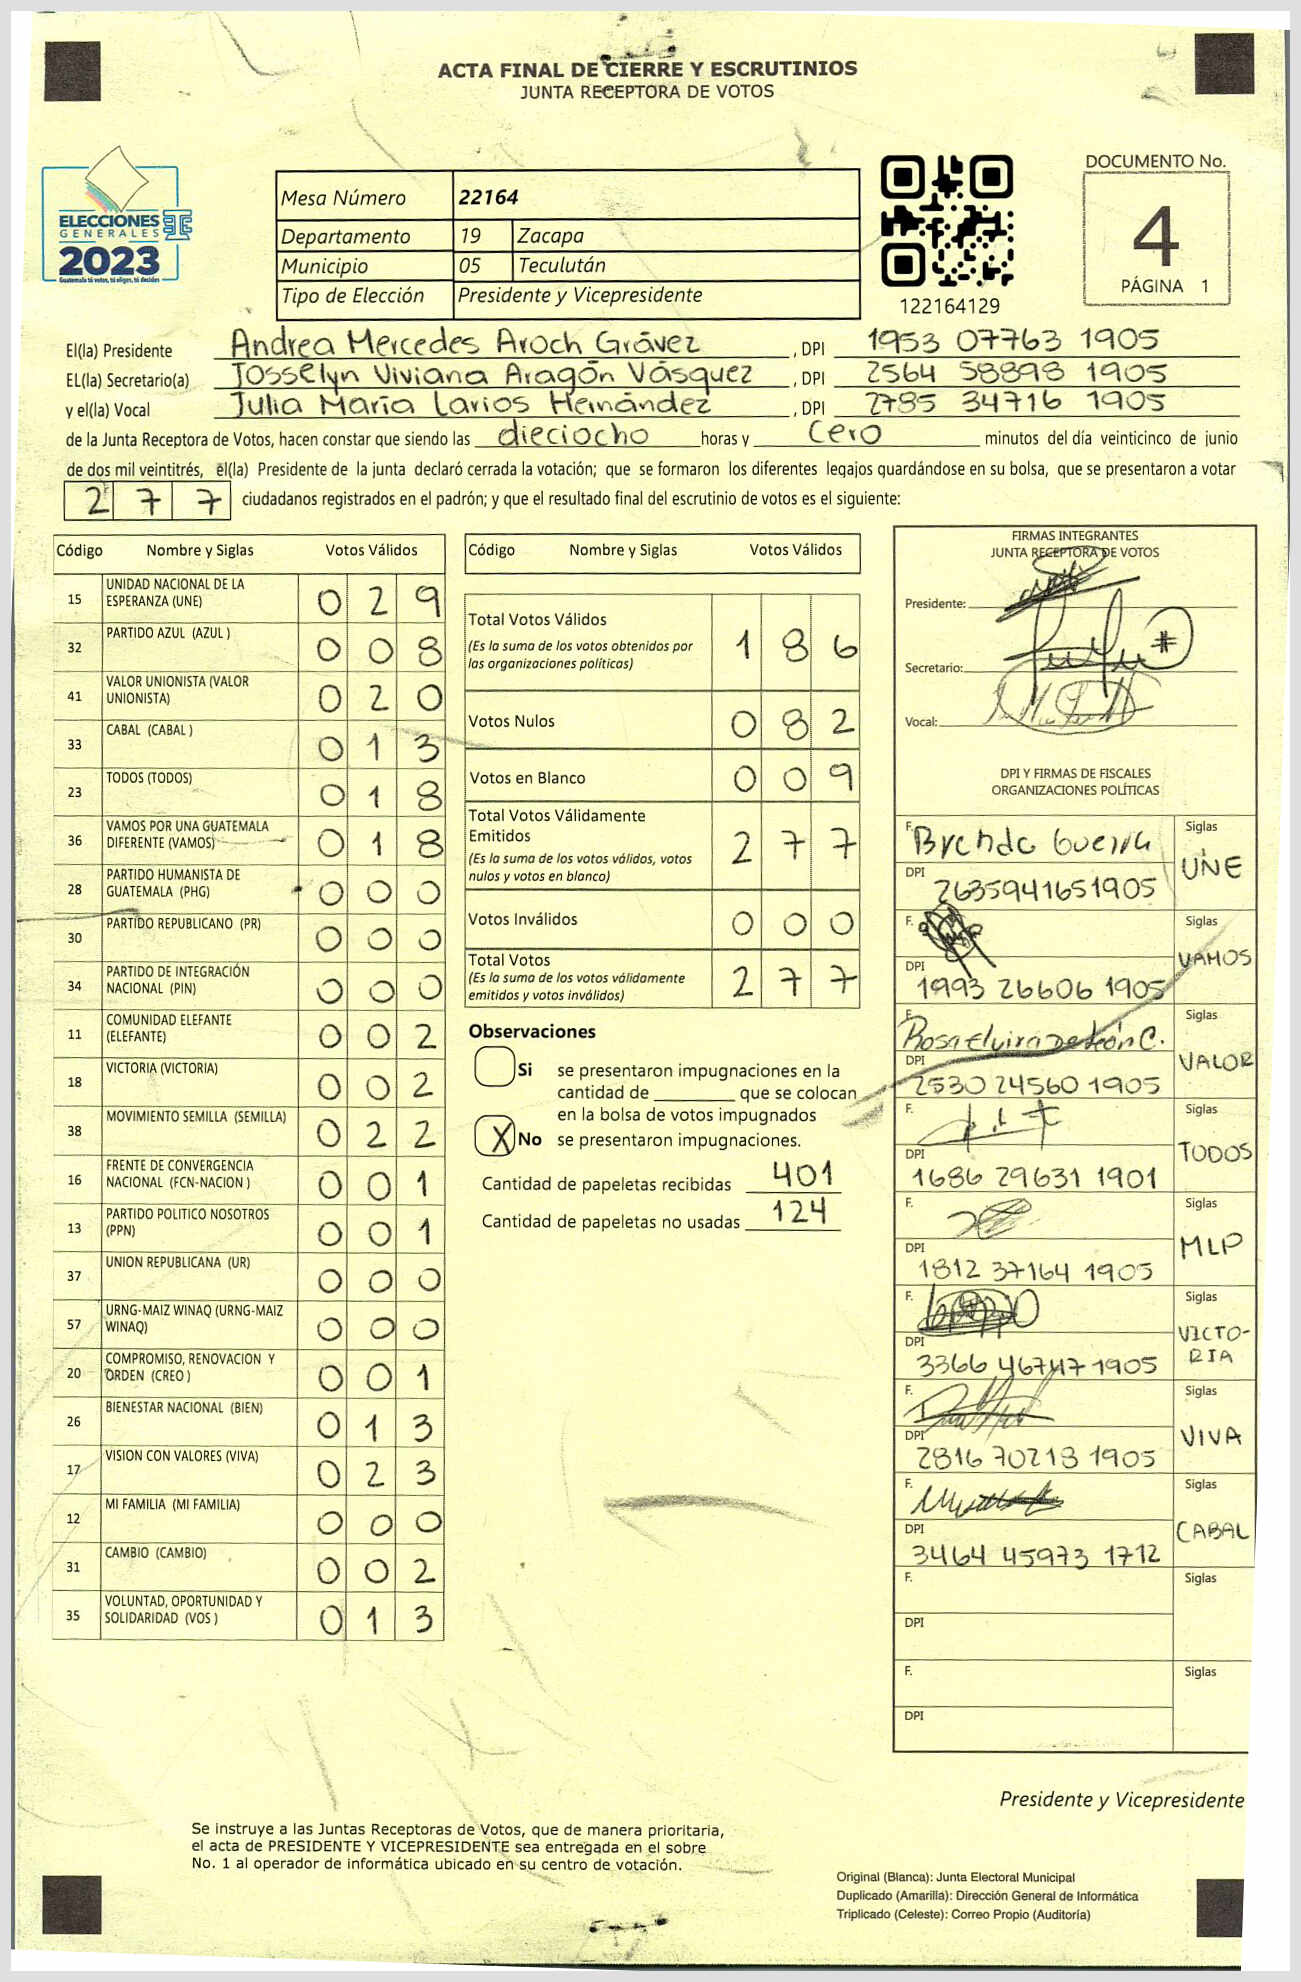 ACTA FINAL DE CIERRE Y ESCRUTINIOS
JUNTA RECEPTORA DE VOTOS
ELECCIONES
GENERALES
2023
Guatemala tú votas, tú eliges, tú decides
Mesa Número 22164
Departamento 19 Zacapa
Municipio 05 Teculután
Tipo de Elección Presidente y Vicepresidente
122164129
DOCUMENTO No.
4
PÁGINA 1
El(la) Presidente Andrea Mercedes Aroch Grávez , DPI 1953 07763 1905
EL(la) Secretario(a) Josselyn Viviana Aragón Vásquez , DPI 2564 58898 1905
y el(la) Vocal Julia María Larios Hernández , DPI 2785 34716 1905
de la Junta Receptora de Votos, hacen constar que siendo las dieciocho horas y cero minutos del día veinticinco de junio
de dos mil veintitrés, el(la) Presidente de la junta declaró cerrada la votación; que se formaron los diferentes legajos guardándose en su bolsa, que se presentaron a votar
277 ciudadanos registrados en el padrón; y que el resultado final del escrutinio de votos es el siguiente:
Código Nombre y Siglas Votos Válidos
15 UNIDAD NACIONAL DE LA ESPERANZA (UNE) 029
32 PARTIDO AZUL (AZUL ) 008
41 VALOR UNIONISTA (VALOR UNIONISTA) 020
33 CABAL (CABAL ) 013
23 TODOS (TODOS) 018
36 VAMOS POR UNA GUATEMALA DIFERENTE (VAMOS) 018
28 PARTIDO HUMANISTA DE GUATEMALA (PHG) 000
30 PARTIDO REPUBLICANO (PR) 000
34 PARTIDO DE INTEGRACIÓN NACIONAL (PIN) 000
11 COMUNIDAD ELEFANTE (ELEFANTE) 002
18 VICTORIA (VICTORIA) 002
38 MOVIMIENTO SEMILLA (SEMILLA) 022
16 FRENTE DE CONVERGENCIA NACIONAL (FCN-NACION ) 001
13 PARTIDO POLITICO NOSOTROS (PPN) 001
37 UNION REPUBLICANA (UR) 000
57 URNG-MAIZ WINAQ (URNG-MAIZ WINAQ) 000
20 COMPROMISO, RENOVACION Y ORDEN (CREO ) 001
26 BIENESTAR NACIONAL (BIEN) 013
17 VISION CON VALORES (VIVA) 023
12 MI FAMILIA (MI FAMILIA) 000
31 CAMBIO (CAMBIO) 002
35 VOLUNTAD, OPORTUNIDAD Y SOLIDARIDAD (VOS ) 013
Código Nombre y Siglas Votos Válidos
Total Votos Válidos 186
(Es la suma de los votos obtenidos por
las organizaciones políticas)
Votos Nulos 082
Votos en Blanco 009
Total Votos Válidamente
Emitidos 277
(Es la suma de los votos válidos, votos
nulos y votos en blanco)
Votos Inválidos 000
Total Votos 277
(Es la suma de los votos válidamente
emitidos y votos inválidos)
Observaciones
Si se presentaron impugnaciones en la
cantidad de ________ que se colocan
en la bolsa de votos impugnados
X No se presentaron impugnaciones.
Cantidad de papeletas recibidas 401
Cantidad de papeletas no usadas 124
FIRMAS INTEGRANTES
JUNTA RECEPTORA DE VOTOS
Presidente:
Secretario:
Vocal:
DPI Y FIRMAS DE FISCALES
ORGANIZACIONES POLÍTICAS
F. Brenda Guerra Siglas
DPI 2635941651905 UNE
F. Siglas
DPI 1993 26606 1905 VAMOS
F. Rosa Elvira De León C. Siglas
DPI 2530 24560 1905 VALOR
F. Siglas
DPI 1686 29631 1901 TODOS
F. Siglas
DPI 1812 37164 1905 MLP
F. Siglas
DPI 3366 46747 1905 VICTO-
RIA
F. Siglas
DPI 2816 70218 1905 VIVA
F. Siglas
DPI 3464 45973 1712 CABAL
F. Siglas
DPI
F. Siglas
DPI
Presidente y Vicepresidente
Se instruye a las Juntas Receptoras de Votos, que de manera prioritaria,
el acta de PRESIDENTE Y VICEPRESIDENTE sea entregada en el sobre
No. 1 al operador de informática ubicado en su centro de votación.
Original (Blanca): Junta Electoral Municipal
Duplicado (Amarilla): Dirección General de Informática
Triplicado (Celeste): Correo Propio (Auditoría)